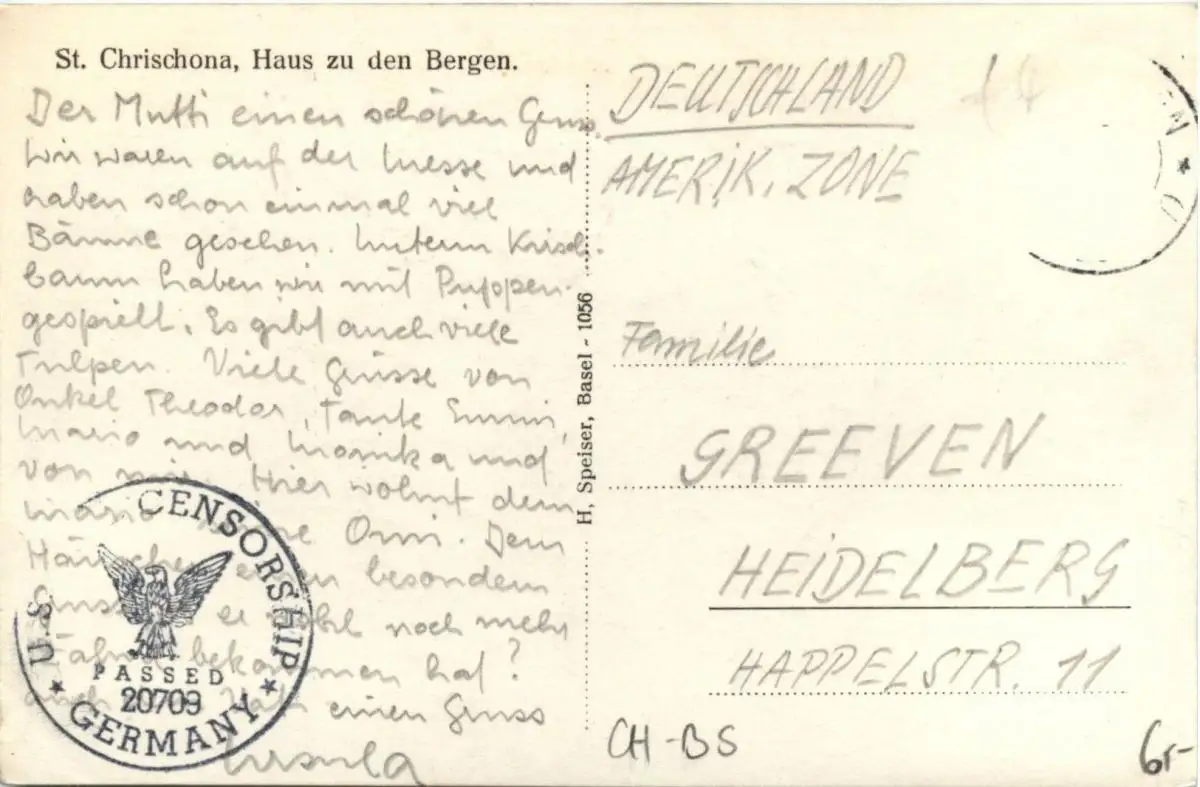 St. Chrischona, Haus zu den Bergen.
Der Mutti einen schönen Gruss.
Wir waren auf der Messe und
haben schon einmal viel
Bäume gesehen. Unterm Kirsch-
baum haben wir mit Puppen
gespielt. Es gibt auch viele
Tulpen. Viele Grüsse von
Onkel Theodor, Tante Emmi,
Mario und Monika und
von mir. Hier wohnt dem
Mario seine Omi. Dem
Hänschen einen besondern
Gruss er wohl noch mehr
Zähne bekommen hat?
einen Gruss
Ursula
U.S. CENSORSHIP
PASSED
20709
GERMANY
H. Speiser, Basel - 1056
DEUTSCHLAND
AMERIK. ZONE
Familie
GREEVEN
HEIDELBERG
HAPPELSTR. 11
CH-BS
6,-